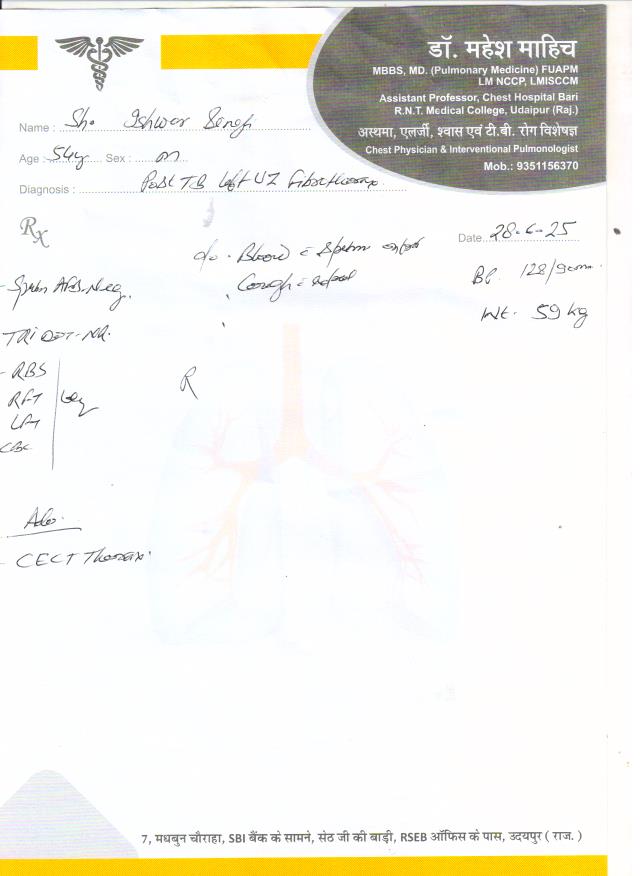 डॉ. महेश माहिच
MBBS, MD. (Pulmonary Medicine) FUAPM
LM NCCP, LMISCCM
Assistant Professor, Chest Hospital Bari
R.N.T. Medical College, Udaipur (Raj.)
अस्थमा, एलर्जी, श्वास एवं टी.बी. रोग विशेषज्ञ
Chest Physician & Interventional Pulmonologist
Mob.: 9351156370
Name : Sh. Ishwar
Age : 54y Sex : m
Diagnosis : Post TB left UZ Fibrothorax
Rx
Date 28-6-25
c/o - Blood c Sputum
Cough c
BP. 128/90mm.
Wt. 59 kg
- Sputum AFB-Neg.
TRI DOT-NR.
- RBS
RFT
LFT
CBC
R
Adv.
- CECT Thorax.
7, मधबुन चौराहा, SBI बैंक के सामने, संठ जी की बाड़ी, RSEB ऑफिस के पास, उदयपुर ( राज. )